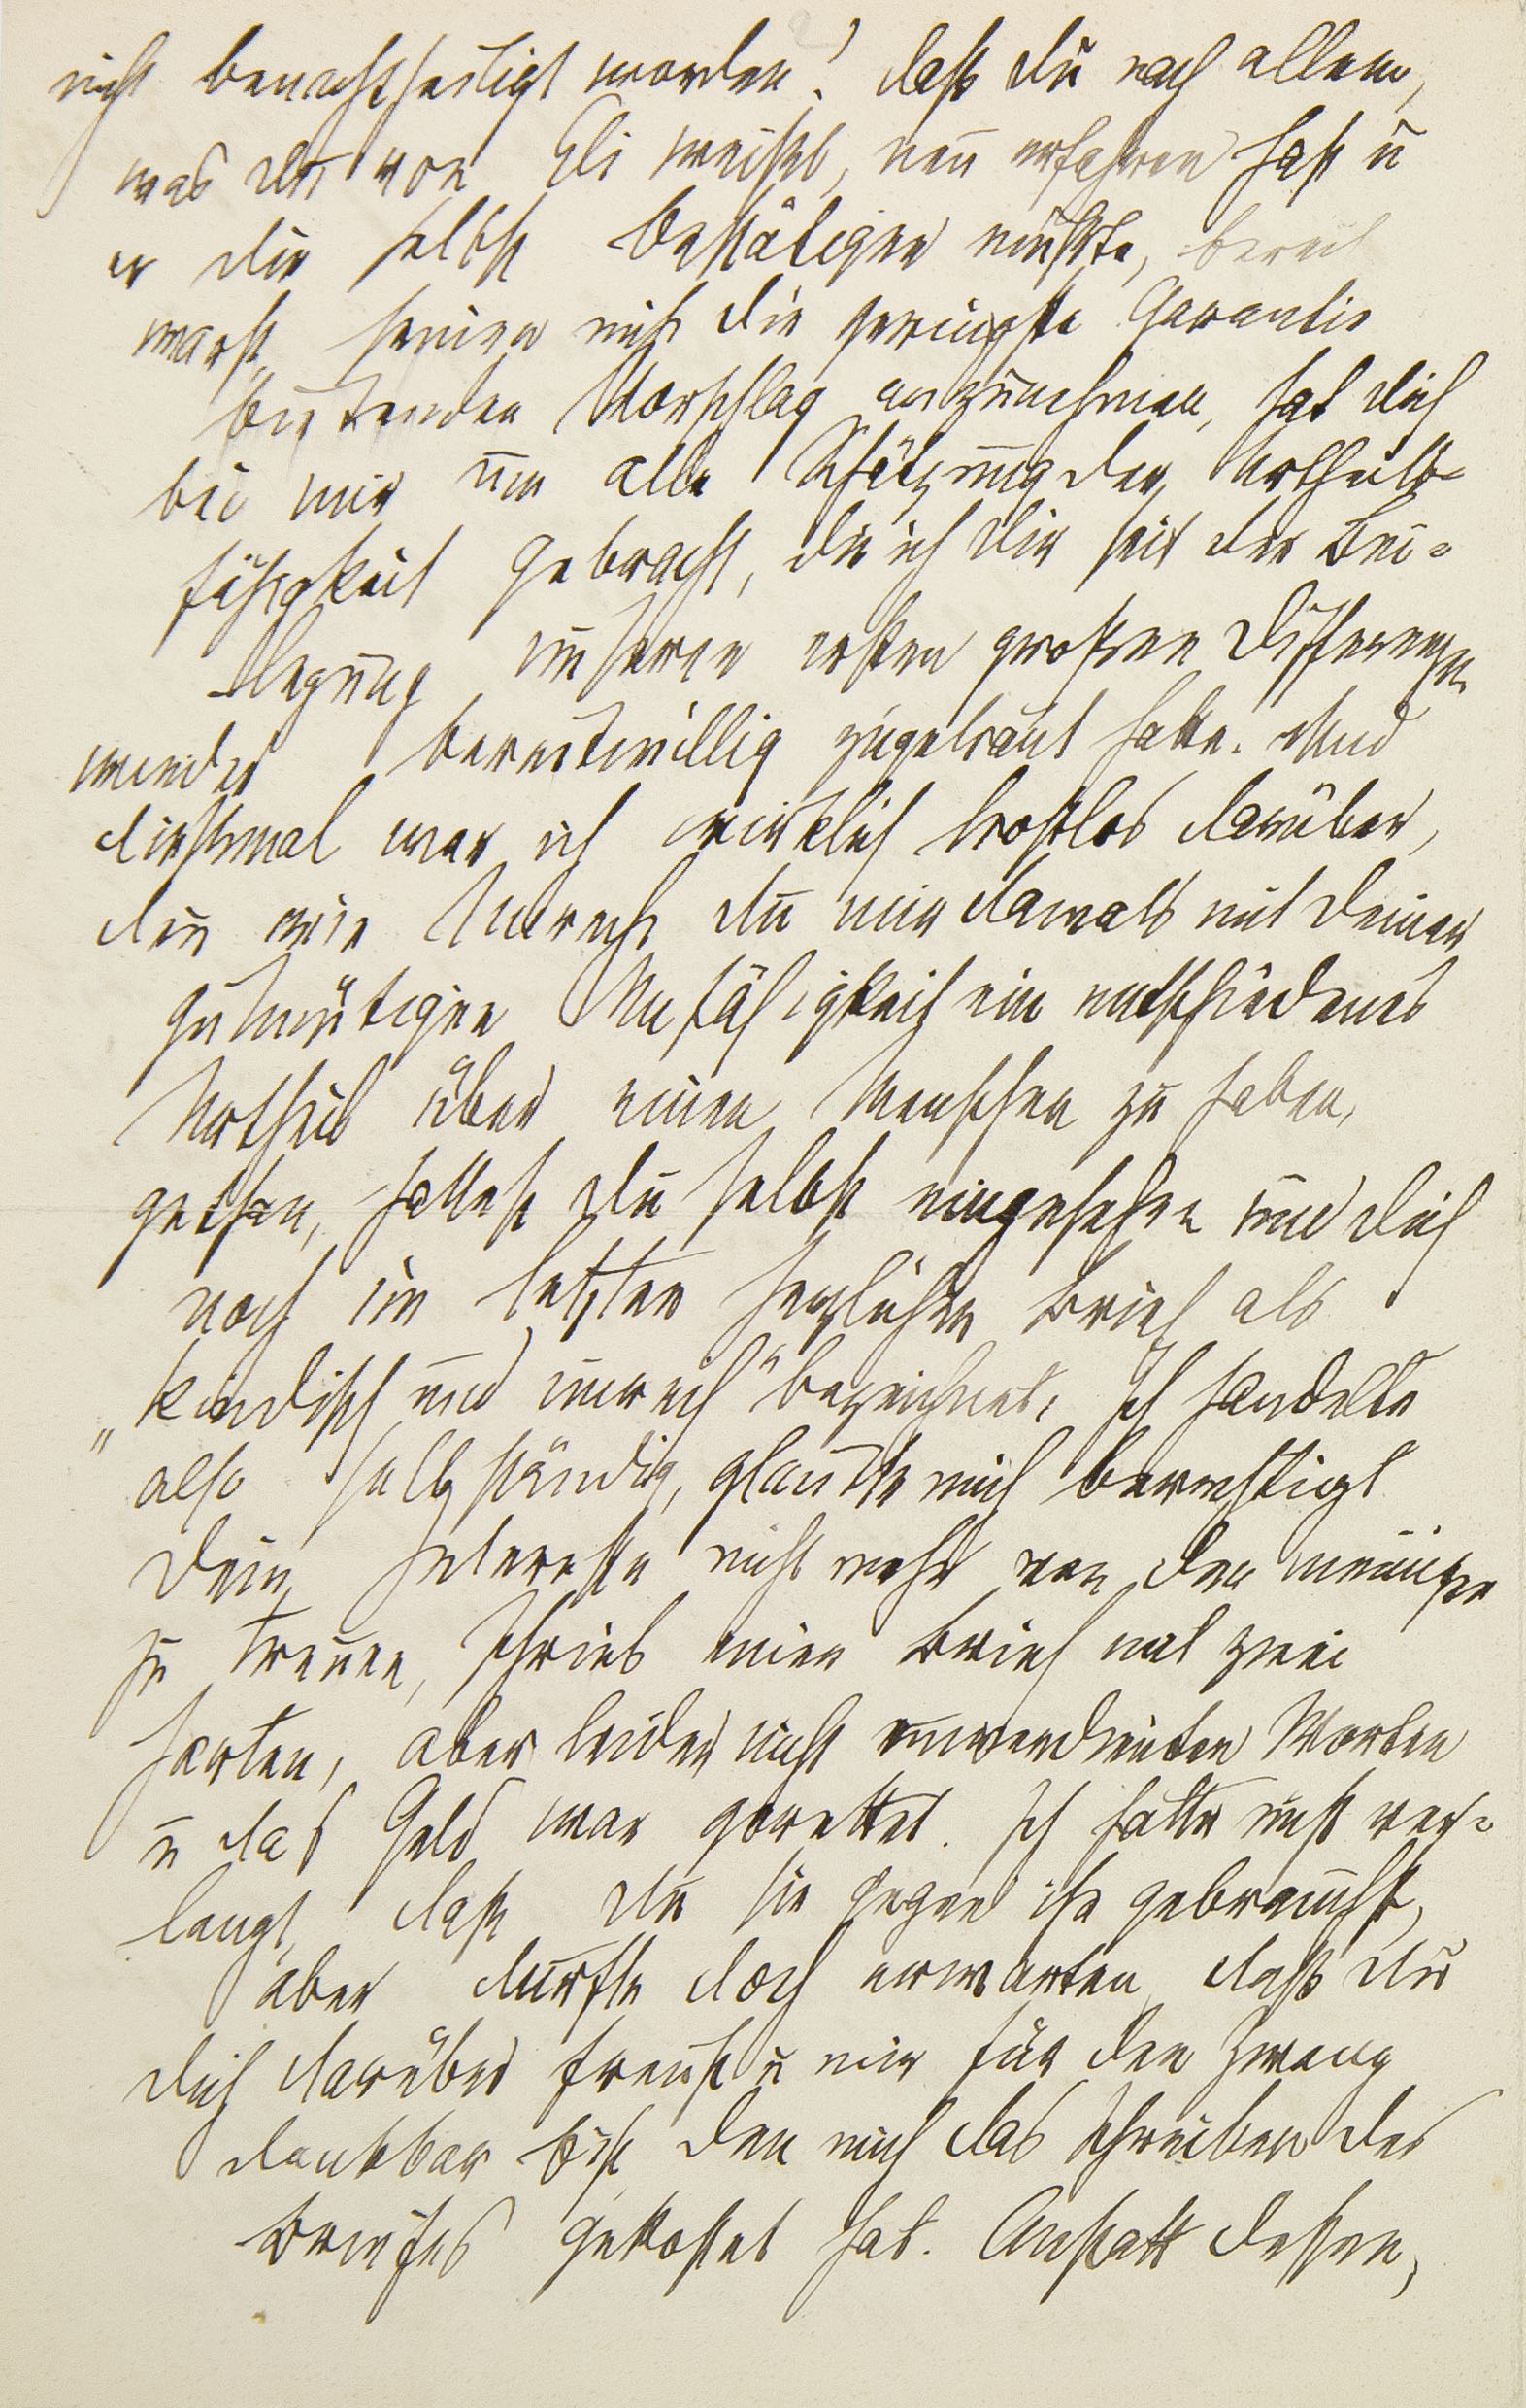 nicht benachtheiligt worden! Daß du nach allem,
was du von Eli weißt, neu erfahren hast u
er dir selbst bestätigen mußte, bereit
warst, seinen nicht die geringste Garantie
bietenden Vorschlag anzunehmen, hat dich
bei mir um alle Schätzung der Urtheils-
fähigkeit gebracht, die ich dir seit der Bei-
legung unserer ersten großen Differenzen
wieder bereitwillig zugetraut hatte. Und
diesmal war ich wirklich trostlos darüber,
denn wie Unrecht du mir damals mit deiner
gutmütigen Unfähigkeit ein entschiedenes
Urtheil über einen Menschen zu haben,
gethan, hattest du selbst eingesehen und dich
noch im letzten herzlichen Brief als
„kindisch und unreif" bezeichnet. Ich handelte
also selbständig, glaubte mich berechtigt
dein Interesse nicht mehr von dem meinigen
zu trennen, schrieb einen Brief mit zwei
harten, aber leider nicht unverdienten Worten
u das Geld war gerettet. Ich hatte nicht ver-
langt, daß du sie gegen ihn gebrauchst,
aber durfte doch erwarten, daß du
dich darüber freust u mir für den Zwang
dankbar bist, den mich das Schreiben des
Briefes gekostet hat. Anstatt dessen,